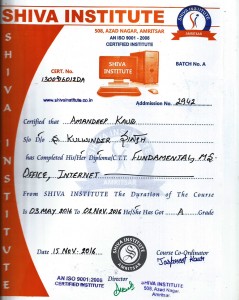 SHIVA INSTITUTE
SHIVA INSTITUTE
508, AZAD NAGAR, AMRITSAR
AN ISO 9001 - 2008
CERTIFIED INSTITUTE
CERT. NO.
SHIVA
INSTITUTE
BATCH No. A
www.shivainstitute.co.in
Addmission No. 2942
Certified that Amandeep Kaur
S/o D/o S. Kulwinder Singh
has Completed His/Her Diploma/C.T.T. Fundamental, M.S-
Office, Internet
From SHIVA INSTITUTE The Duration of The Course
Is 03.May.2016 To 02.Nov.2016 He/She Has Got A Grade
Date 15.Nov.2016
SHIVA INSTITUTE
Director
Course Co-Ordinator
AN ISO 9001:2008
CERTIFIED INSTITUTE
SHIVA INSTITUTE
508, Azad Nagar
Amritsar